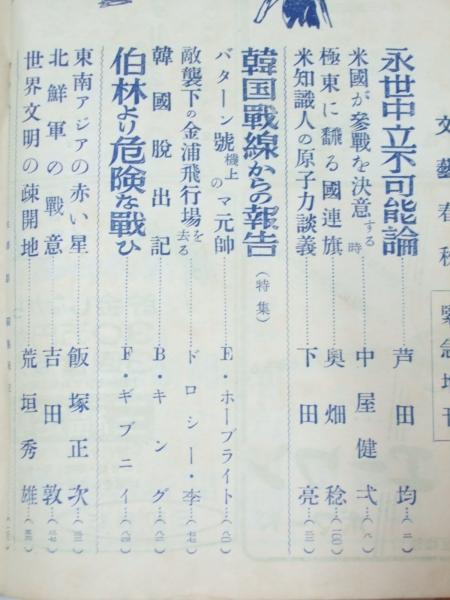 文藝春秋
緊急増刊
永世中立不可能論……芦田均…(二)
米國が參戰を決意する時……中屋健弌…(八)
極東に飜る國連旗……奥畑稔…(一〇)
米知識人の原子力談義……下田亮…(三二)
韓国戰線からの報告(特集)
バターン號機上のマ元帥……E・ホーブライト…(八〇)
敵襲下の金浦飛行場を去る……ドロシー・李…(七七)
韓國脱出記……B・キング…(八二)
伯林より危険な戰ひ……F・ギブニイ…(八四)
東南アジアの赤い星……飯塚正次…
北鮮軍の戰意……吉田敦…(三七)
世界文明の疎開地……荒垣秀雄…